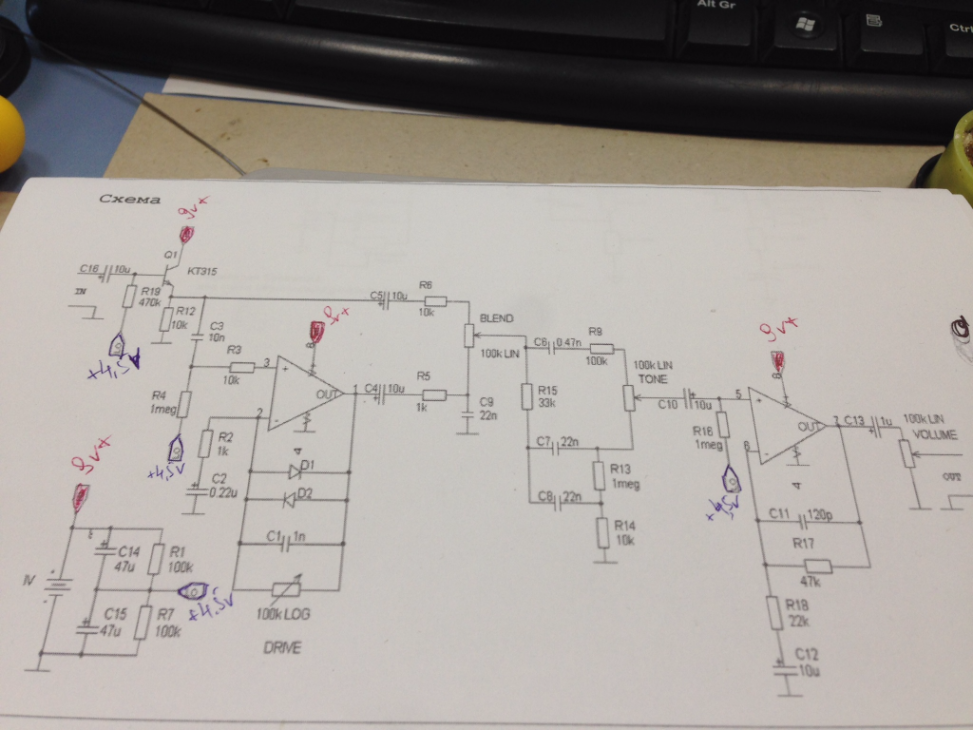 Alt Gr
Ctrl
Схема
9v x
Q1
КТ315
C16 10u
IN
R19
470k
R12
10k
+4,5v
C3
10n
R3
10k
R4
1meg
+4,5v
3
2
8
9v x
OUT
1
4
R2
1k
C2
0.22u
D1
D2
C1 1n
100k LOG
DRIVE
C5 10u
R6
10k
C4 10u
R5
1k
BLEND
100k LIN
C9
22n
C6 0.47n
R9
100k
R15
33k
C7 22n
C8 22n
R13
1meg
R14
10k
100k LIN
TONE
C10 10u
R16
1meg
9v x
8
5
6
OUT
7
4
C13 1u
100k LIN
VOLUME
OUT
C11 120p
R17
47k
R18
22k
C12
10u
9v x
C14
47u
R1
100k
C15
47u
R7
100k
+4.5v